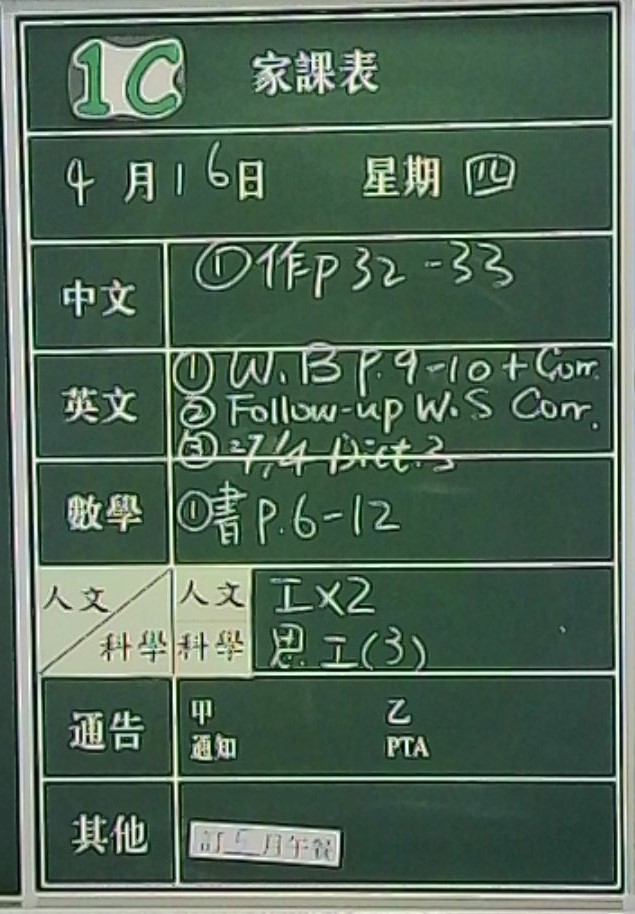 1C 家課表
4月16日 星期四
中文
①作p 32-33
英文
① W.B P.9-10 + Corr.
② Follow-up W.S Corr.
③ 27/4 Dict.3
數學
①書 P.6-12
人文
科學
人文
工x2
科學
思工(3)
通告
甲 乙
通知 PTA
其他
訂5月午餐